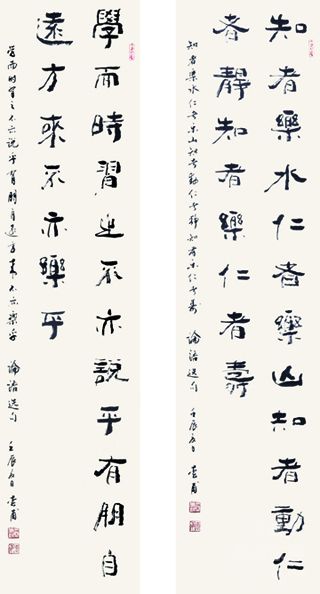 知者樂水仁者樂山知者動仁
者靜知者樂仁者壽
知者樂水仁者樂山知者動仁者靜知者樂仁者壽 論語選句 壬辰
學而時習之不亦說乎有朋自
遠方來不亦樂乎
學而時習之不亦說乎有朋自遠方來不亦樂乎 論語選句 壬辰